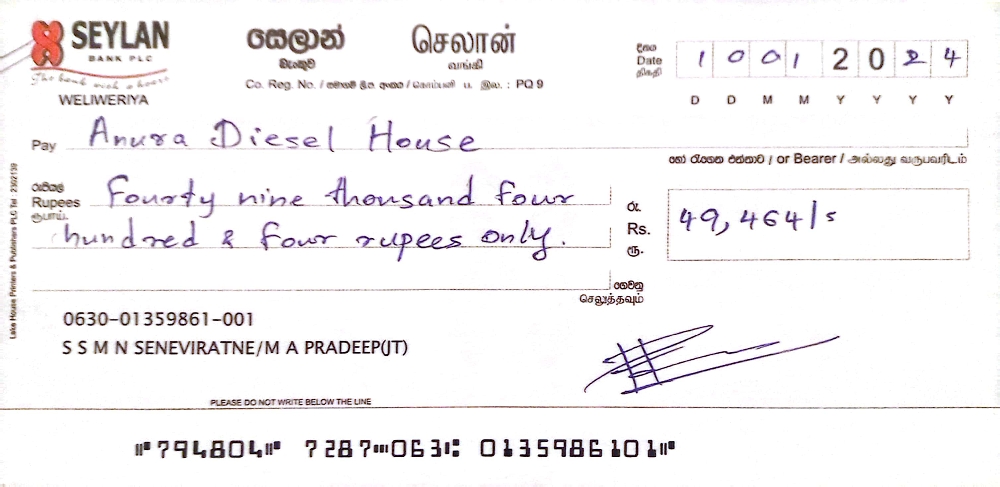 SEYLAN
BANK PLC
The bank with a heart
WELIWERIYA
සෙලාන්
බැංකුව
செலான்
வங்கி
Co. Reg. No. / සමාගම් ලියා. අංකය / கொம்பனி ப. இல. : PQ 9
දිනය
Date
திகதி
1 0 0 1 2 0 2 4
D D M M Y Y Y Y
Pay Anura Diesel House
හෝ රැගෙන එන්නාට / or Bearer / அல்லது வருபவரிடம்
රුපියල්
Rupees
ரூபாய்.
Fourty nine thousand four
hundred & four rupees only.
රු.
Rs.
ரூ.
49,464/s
ගෙවනු
செலுத்தவும்
0630-01359861-001
S S M N SENEVIRATNE/M A PRADEEP(JT)
PLEASE DO NOT WRITE BELOW THE LINE
⑈794804⑈ 7287⑉063⑆ 0135986101⑈
Lake House Printers & Publishers PLC Tel 2392139